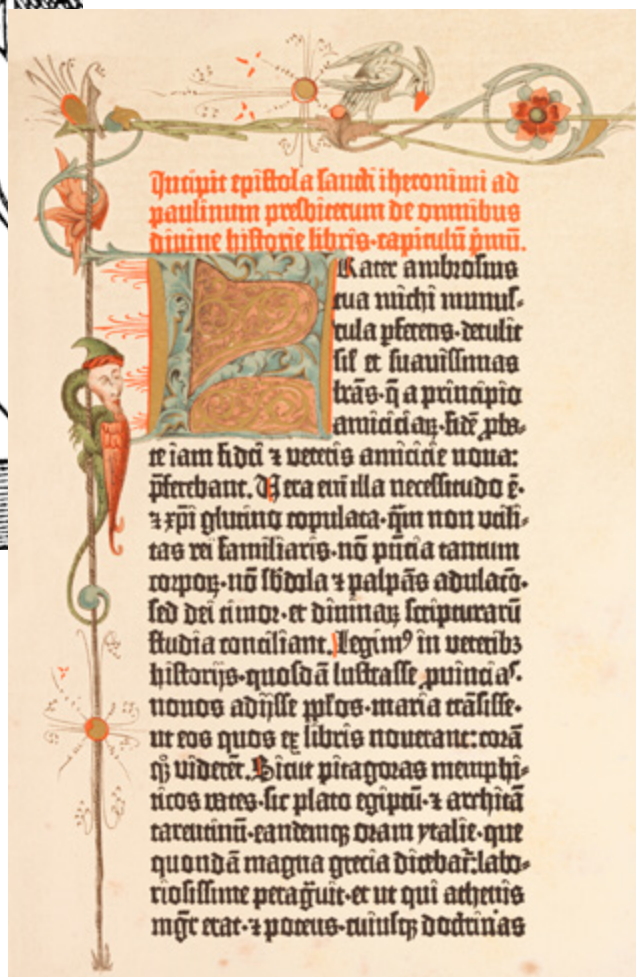 Incipit epistola sancti iheronimi ad
paulinum presbiterum de omnibus
divine historie libris·capitulū p̄mū.
Frater ambrosius
tua michi munus-
cula pferens·detulit
sil̄ et suavissimas
lr̄as·q̄ a principio
amiciciaꝝ·fidē ꝓba-
te iam fidei ⁊ veteris amicicie nova:
p̄ferebant. Vera eni̅ illa necessitudo ē·
⁊ xp̄i glutino copulata·q̄m non utili-
tas rei familiaris·nō p̄ntia tantum
corpoꝝ·nō sbdola ⁊ palpās adulacō·
sed dei timor·et divinaꝝ scripturarū
studia conciliant. Legimꝰ in veteribꝫ
historijs·quosdā lustrasse ꝓvincias·
novos adijsse ppl̄os·maria trāsisse·
ut eos quos ex libris noverant: corā
qꝫ viderēt. Sicut pitagoras memphi-
ticos vates·sic plato egiptū·⁊ architā
tarentinū·eandemqꝫ oram ytalie·que
quondā magna grecia dicebat̄: labo-
riosissime peragᷓvit·et ut qui athenis
mgr̄ erat·⁊ potens·cuiusqꝫ doctrinas